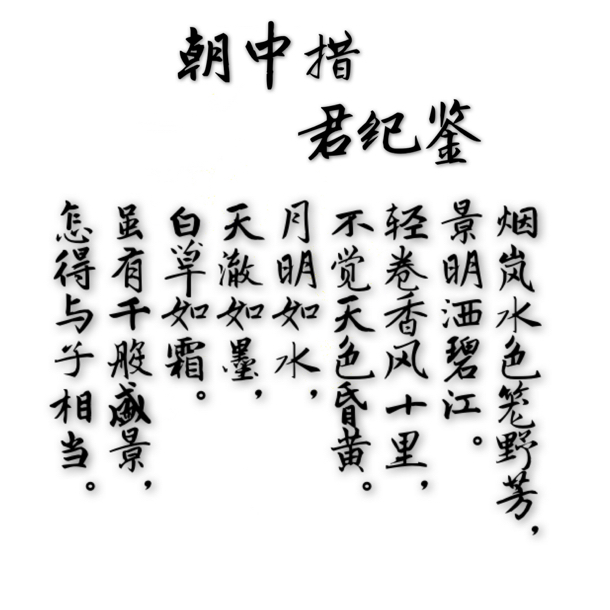 朝中措
君纪鉴
烟岚水色笼野芳，
景明洒碧江。
轻卷香风十里，
不觉天色昏黄。
月明如水，
天澈如墨，
白草如霜。
虽有千般盛景，
怎得与子相当。